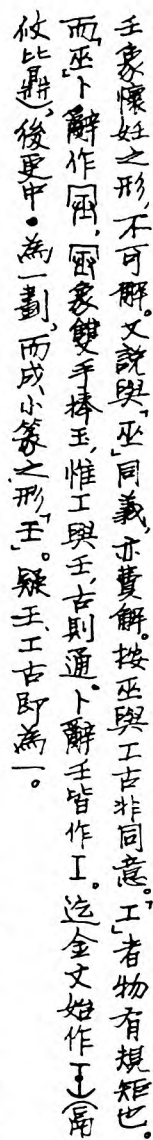 壬象懷妊之形,不可解。又說與「巫」同義,亦費解。按巫與工古非同意。「工」者物有規矩也。
而「巫」卜辭作,象雙手捧玉,惟工與壬,古則通。卜辭壬皆作工。迄金文始作(鬲
攸比鼎),後更中•為一劃,而成小篆之形「壬」。疑壬、工古即為一。